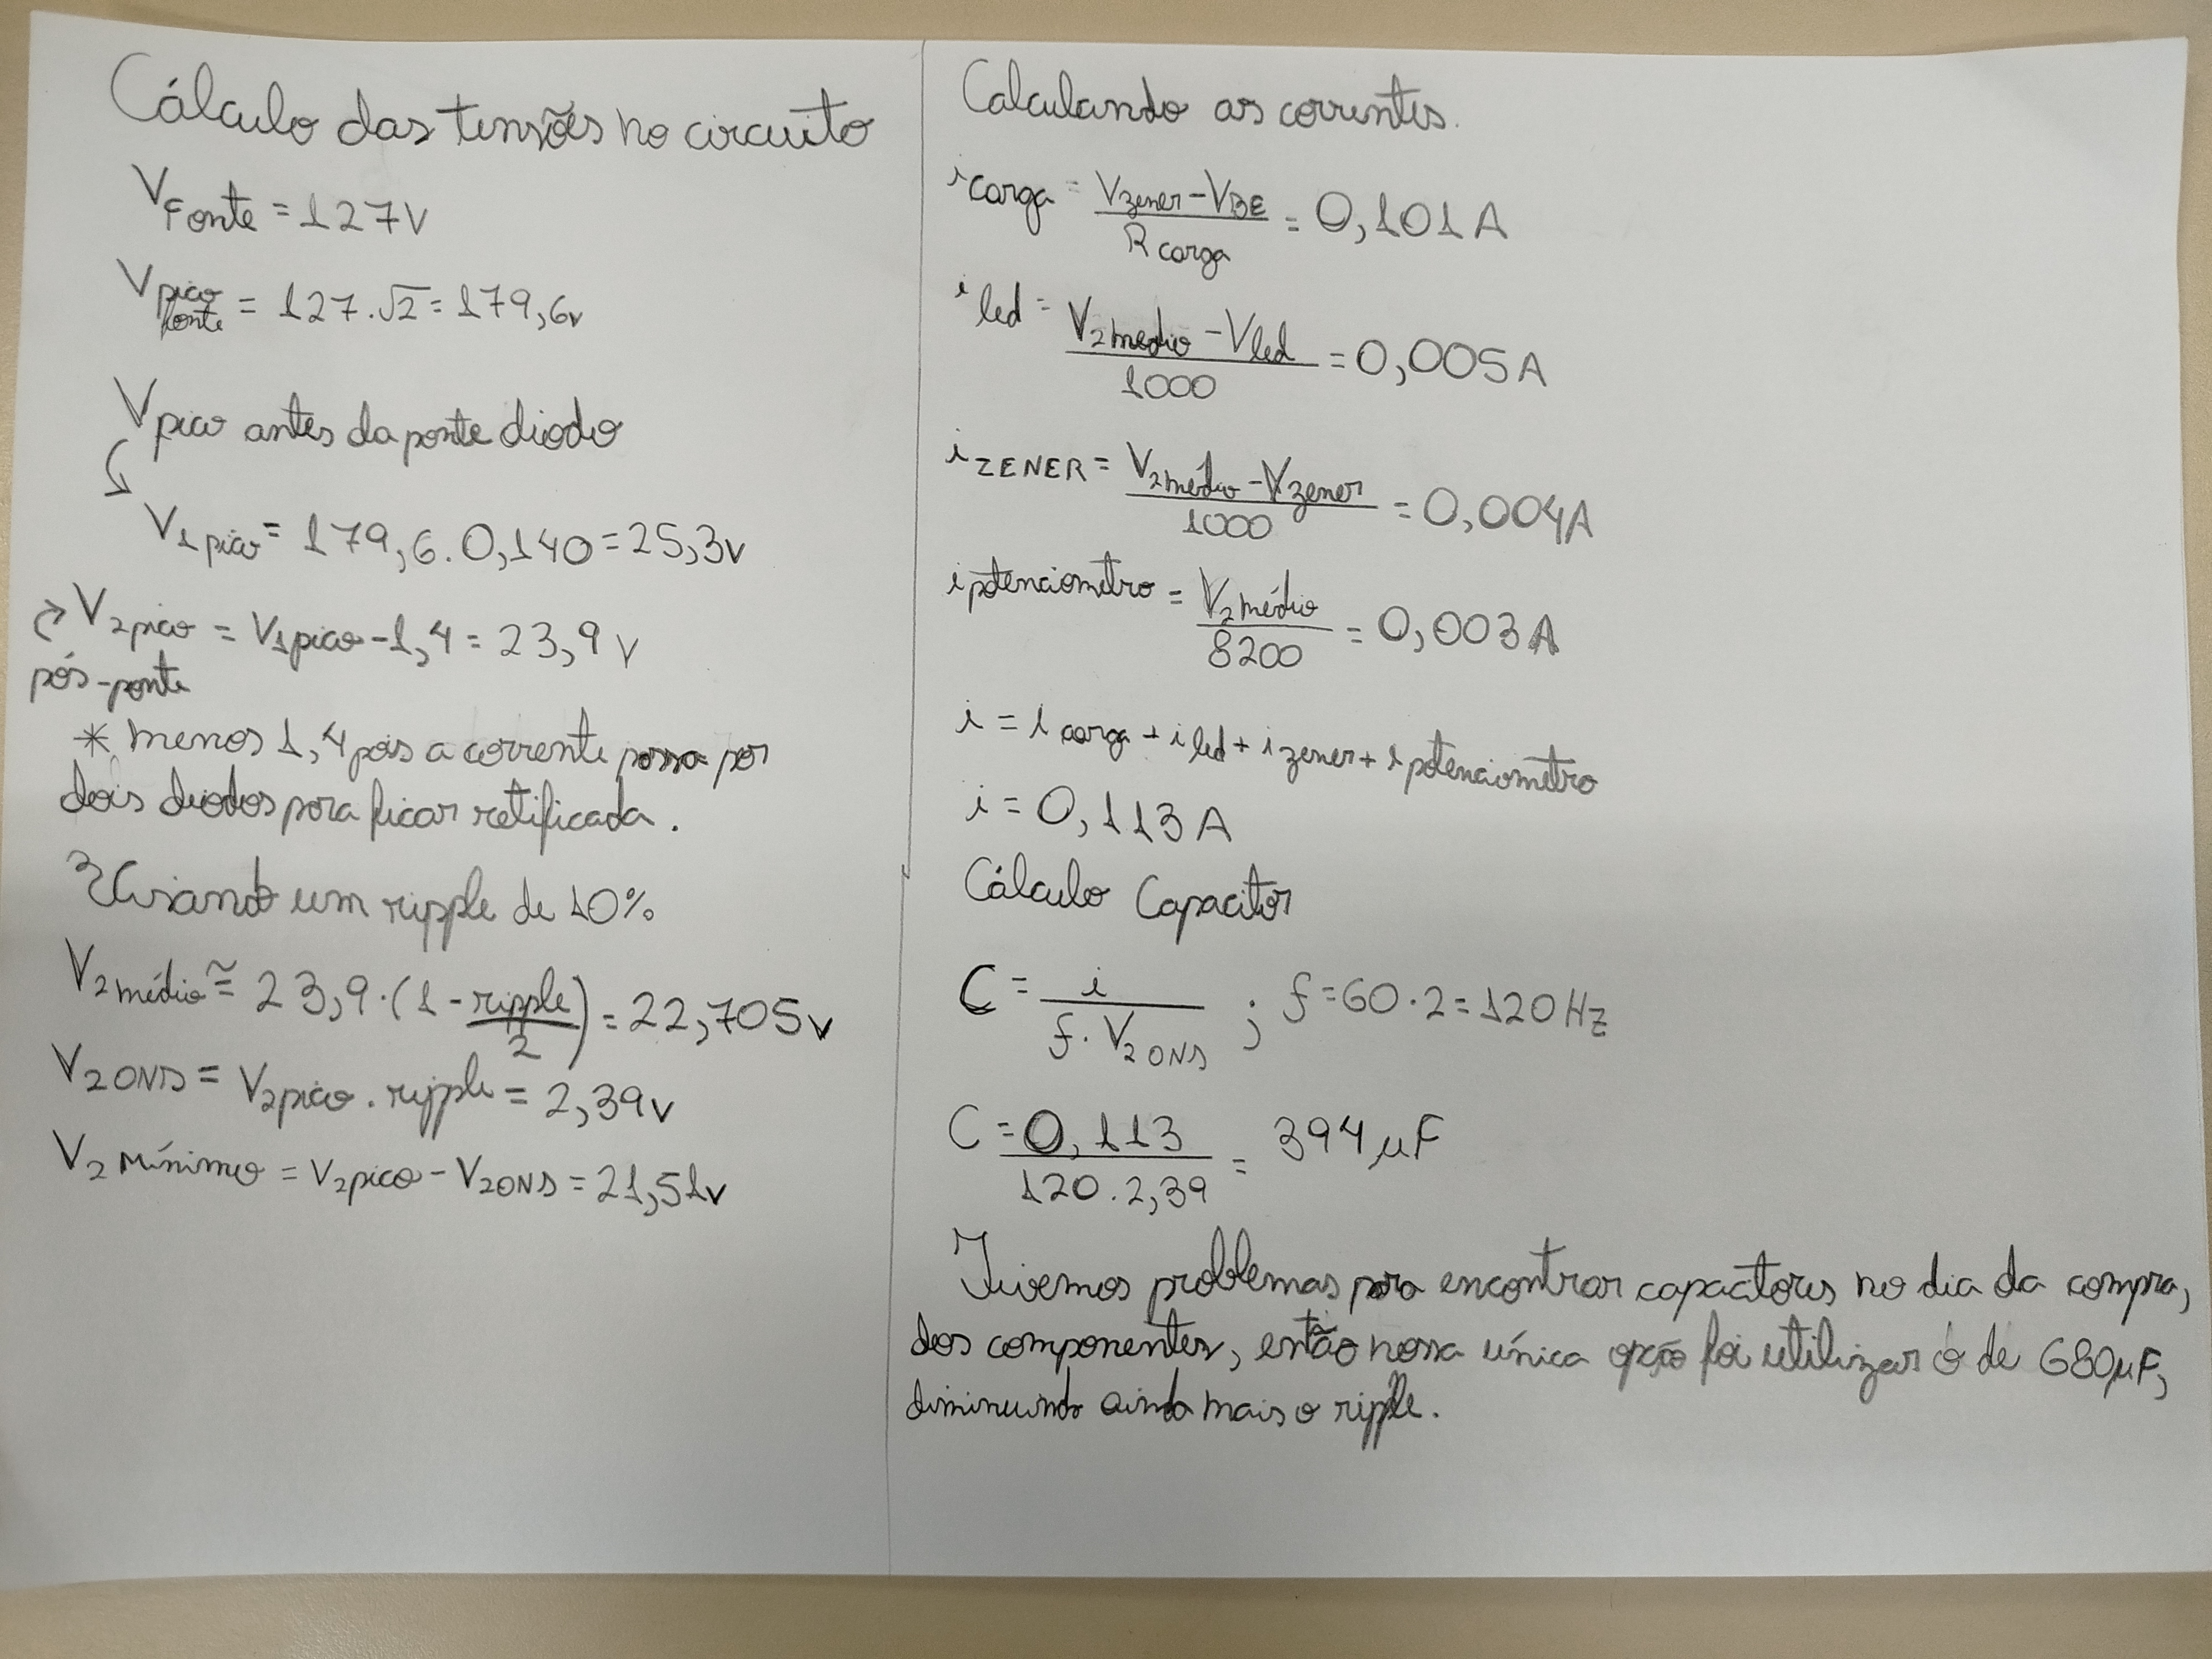 Cálculo das tensões no circuito
V Fonte = 127V
V pico fonte = 127.√2 = 179,6v
V pico antes da ponte diodo
V1pico = 179,6.0,140 = 25,3v
V2pico = V1pico-1,4 = 23,9 v
pós-ponte
* menos 1,4 pois a corrente passa por
dois diodos para ficar retificada.
Usando um ripple de 10%
V2médio ≅ 23,9.(1-ripple/2) = 22,705v
V2OND = V2pico.ripple = 2,39v
V2 Mínimo = V2pico-V2OND = 21,51v
Calculando as correntes.
i carga = Vzener-VBE/Rcarga = 0,101A
i led = V2medio-Vled/1000 = 0,005A
i ZENER = V2médio-Vzener/1000 = 0,004A
i potenciometro = V2médio/8200 = 0,003A
i = i carga + i led + i zener + i potenciometro
i = 0,113A
Cálculo Capacitor
C = i/f.V2OND ; f=60.2=120Hz
C = 0,113/120.2,39 = 394μF
Tivemos problemas para encontrar capacitores no dia da compra,
dos componentes, então nossa única opção foi utilizar o de 680μF,
diminuindo ainda mais o ripple.